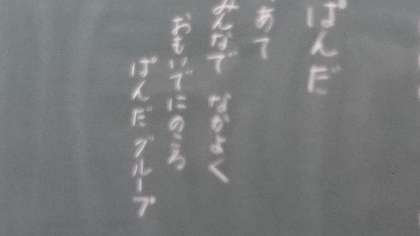 ぱんだ
あて
みんなで なかよく
おもいでにのころ
ぱんだグループ